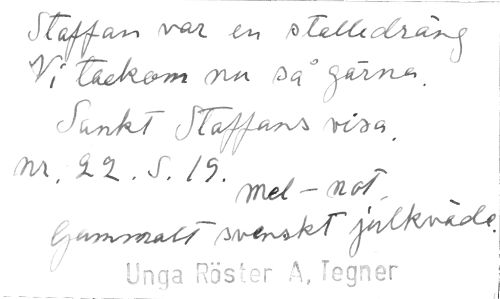 Staffan var en stalledräng
Vi tackom nu så gärna.
Sankt Staffans visa.
nr. 22. S. 19.
mel-not.
Gammalt svenskt julkväde.
Unga Röster A, Tegner